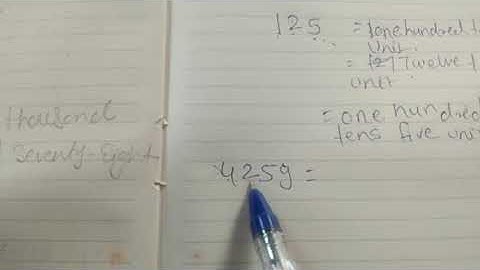 thousand
Seventy-Eight
125 = one hundred
unit.
= Twelve
unit
= one hundred
tens five
4259 =